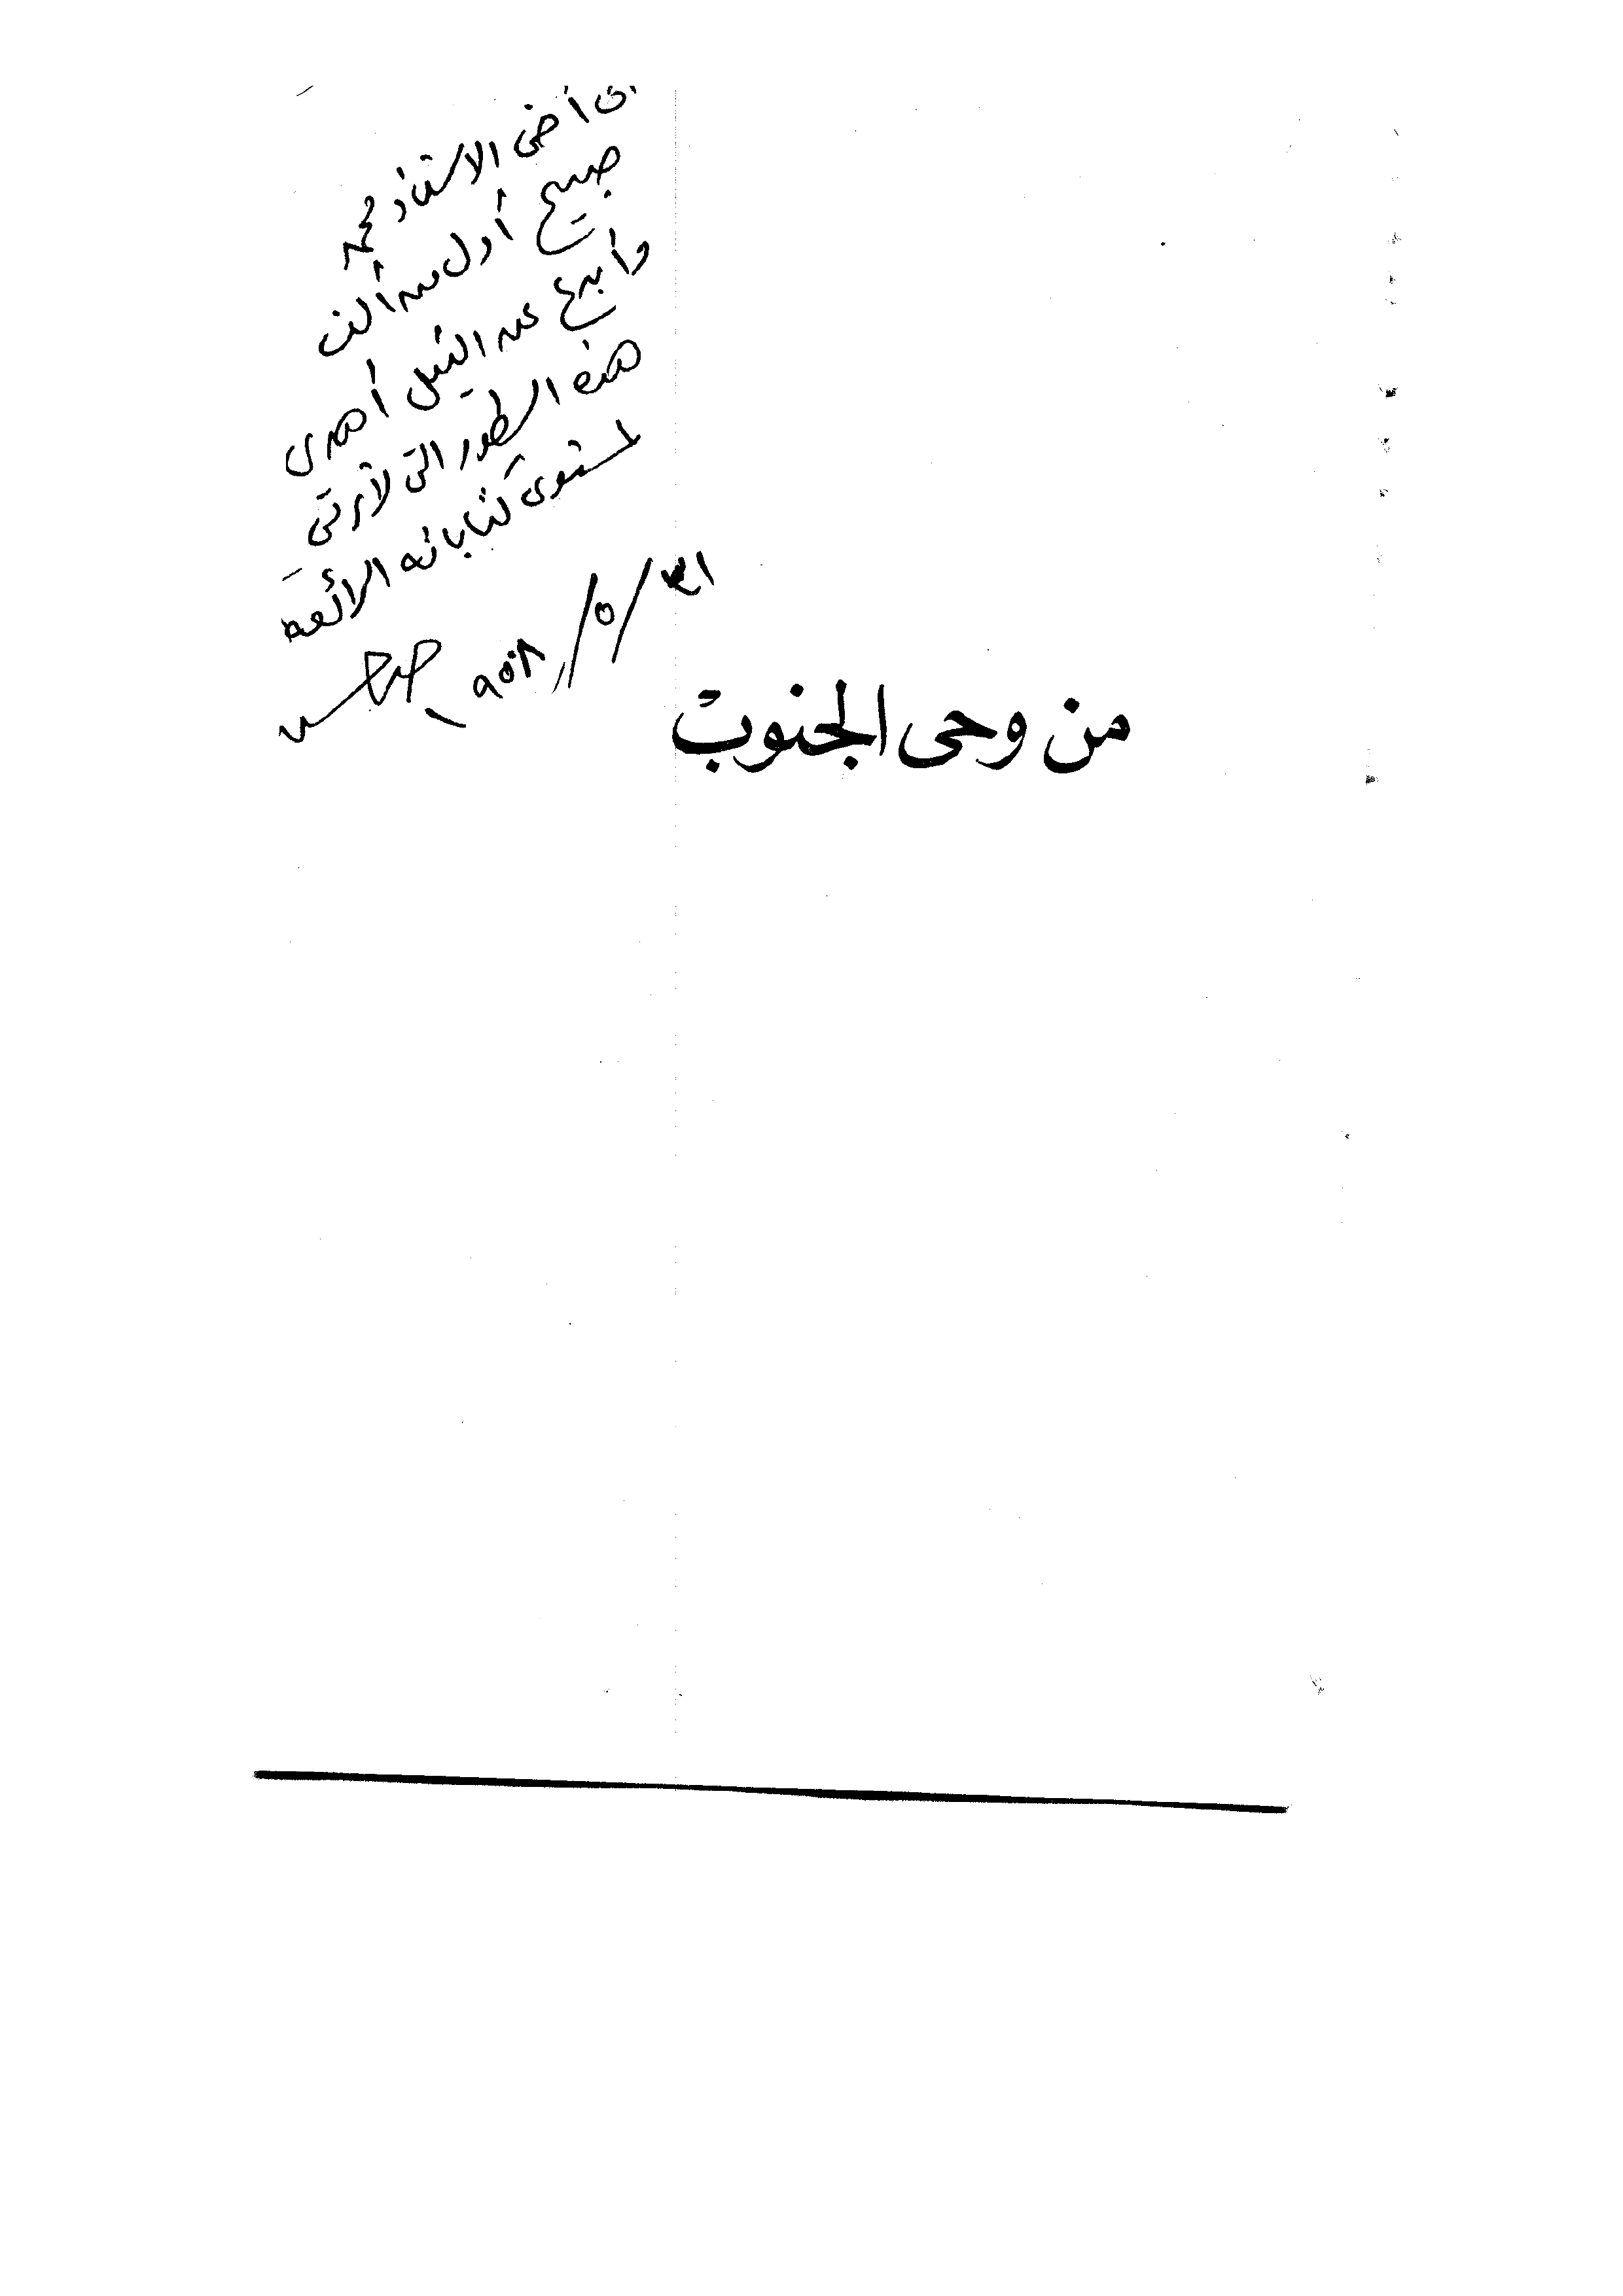 إلى أخى الاستاذ محمد
صبيح أول من ألف
وأبدع عن النيل أهدى
هذه السطور التى لا ترقى
لمستوى كتاباته الرائعة
٣١/٥/١٩٥٨
من وحى الجنوب